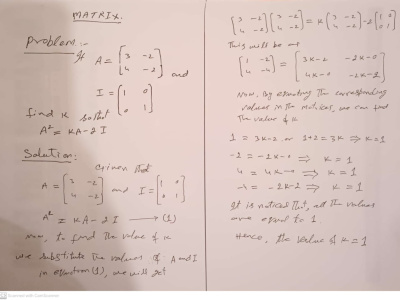 MATRIX.
Problem:-
If A = [3 -2
4 -2] and
I = [1 0
0 1]
find K so that
A² = KA - 2I
Solution:
Given that
A = [3 -2
4 -2] and I = [1 0
0 1]
A² = KA - 2I → (1)
Now, to find the value of K
we substitute the values of A and I
in equation (1), we will get
[3 -2
4 -2] [3 -2
4 -2] = K [3 -2
4 -2] - 2 [1 0
0 1]
This will be out
[1 -2
4 -4] = [3K-2 -2K-0
4K-0 -2K-2]
Now, By equating the corresponding
values in the matrices, we can find
the value of K
1 = 3K-2 or 1+2 = 3K ⇒ K=1
-2 = -2K-0 ⇒ K = 1
4 = 4K-0 ⇒ K = 1
-4 = -2K-2 ⇒ K = 1
It is noticed that, all the values
are equal to 1.
Hence, the value of K = 1
Scanned with CamScanner